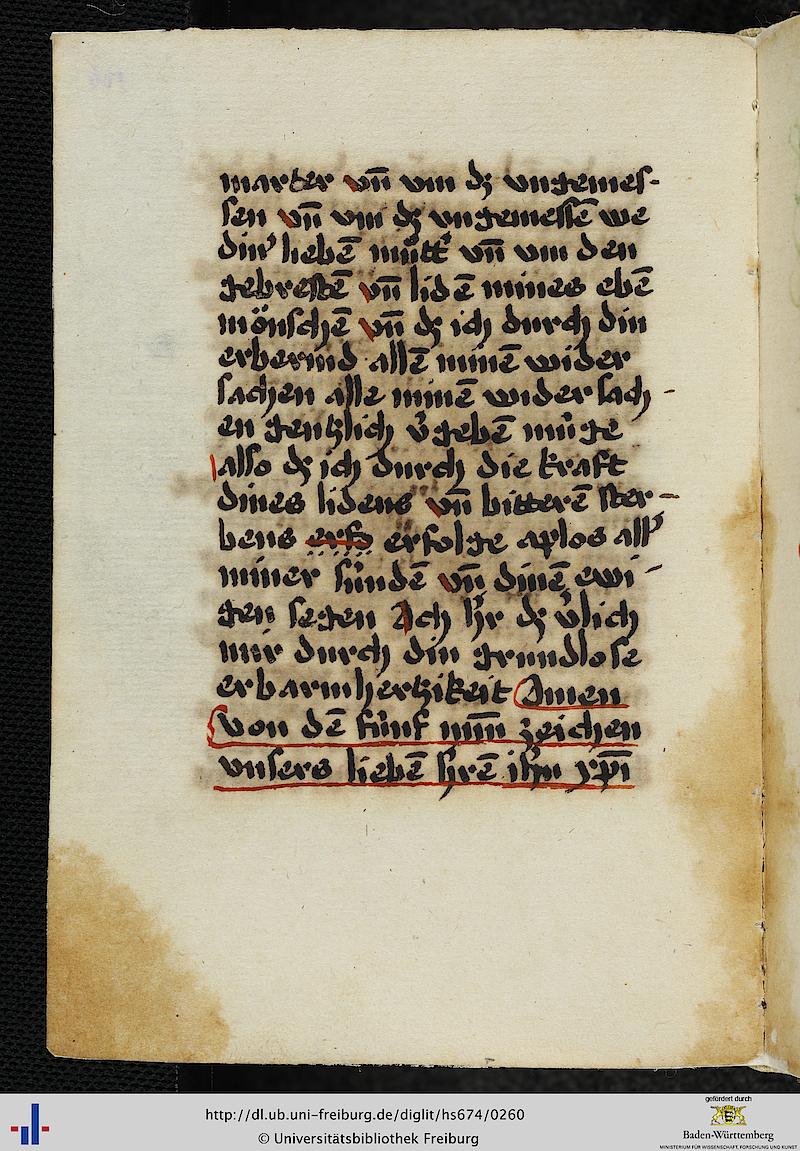 marter vn̄ vm dʒ vngemes-
sen vn̄ vm dʒ vngemessē we
dinr̉ liebē mu̍tt̉ vn̄ vm den
gebrestē vn̄ lidē mines ebē
mönschē vn̄ dʒ ich durch din
erbermd allē minē wider
sachen alle minē widersach-
en gentzlich v̉gebē mu̍ge
also dʒ ich durch die kraft
dines lidens vn̄ bitterē ster-
bens erfo erfolge aplos all'
miner sündē vn̄ dinē ewi-
gen segen Ach hr̉ dʒ v̉lich
mir durch din grundlose
erbarmhertzikeit Amen
von dē fu̍nf min̄ zeichen
vnsers liebē hrē ihū xp̄i
http://dl.ub.uni-freiburg.de/diglit/hs674/0260
© Universitätsbibliothek Freiburg
gefördert durch
Baden-Württemberg
MINISTERIUM FÜR WISSENSCHAFT, FORSCHUNG UND KUNST